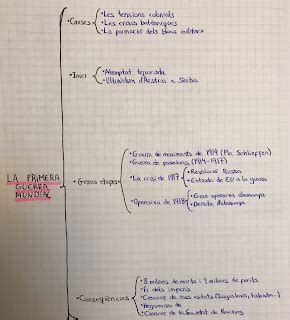 LA PRIMERA
GUERRA
MUNDIAL
• Causes
• Les tensions colonials
• Les crisis balcàniques
• La formació dels blocs militars
• Inici
• Atemptat terrorista
• Ultimàtum d'Àustria a Sèrbia
• Grans etapes
• Guerra de moviments de 1914 (Pla Schlieffen)
• Guerra de posicions (1914-1917)
• La crisi de 1917
• Revolució Russa
• Entrada de EU a la guerra
• Ofensiva de 1918
• Gran ofensiva alemanya
• Derrota d'Alemanya
• Conseqüències
• 8 milions de morts i milions de ferits
• Fi dels imperis
• Creació de nous estats (Iugoslàvia, Finlàndia...)
• Creació de la Societat de Nacions